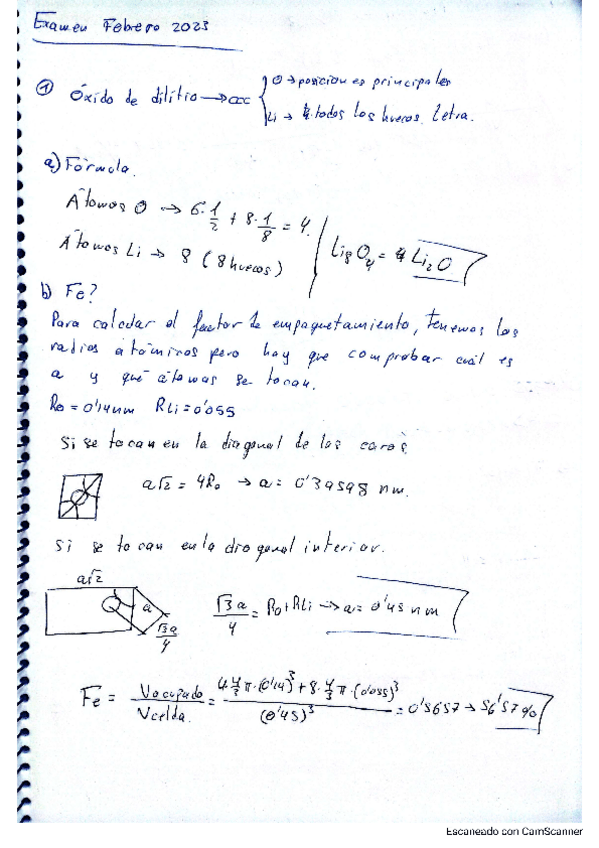 Examen Febrero 2023
① Óxido de dilitio → ccc { O → posiciones principales
Li → todos los huecos tetra.
a) Fórmula.
Átomos O → 6·1/2 + 8·1/8 = 4.
Átomos Li → 8 (8 huecos)
Li8O4 = 4 Li2O
b) Fe?
Para calcular el factor de empaquetamiento, tenemos los
radios atómicos pero hay que comprobar cuál es
a y qué átomos se tocan.
Ro = 0'14nm RLi = 0'055
Si se tocan en la diagonal de las caras
a√2 = 4Ro → a = 0'39598 nm.
Si se tocan en la diagonal interior.
a√2
a
√3a/4
√3a/4 = Ro + RLi → a = 0'45 nm
Fe = Vocupado/Vcelda = (4·4/3 π·(0'14)³ + 8·4/3 π·(0'055)³)/(0'45)³ = 0'5657 → 56'57%
Escaneado con CamScanner